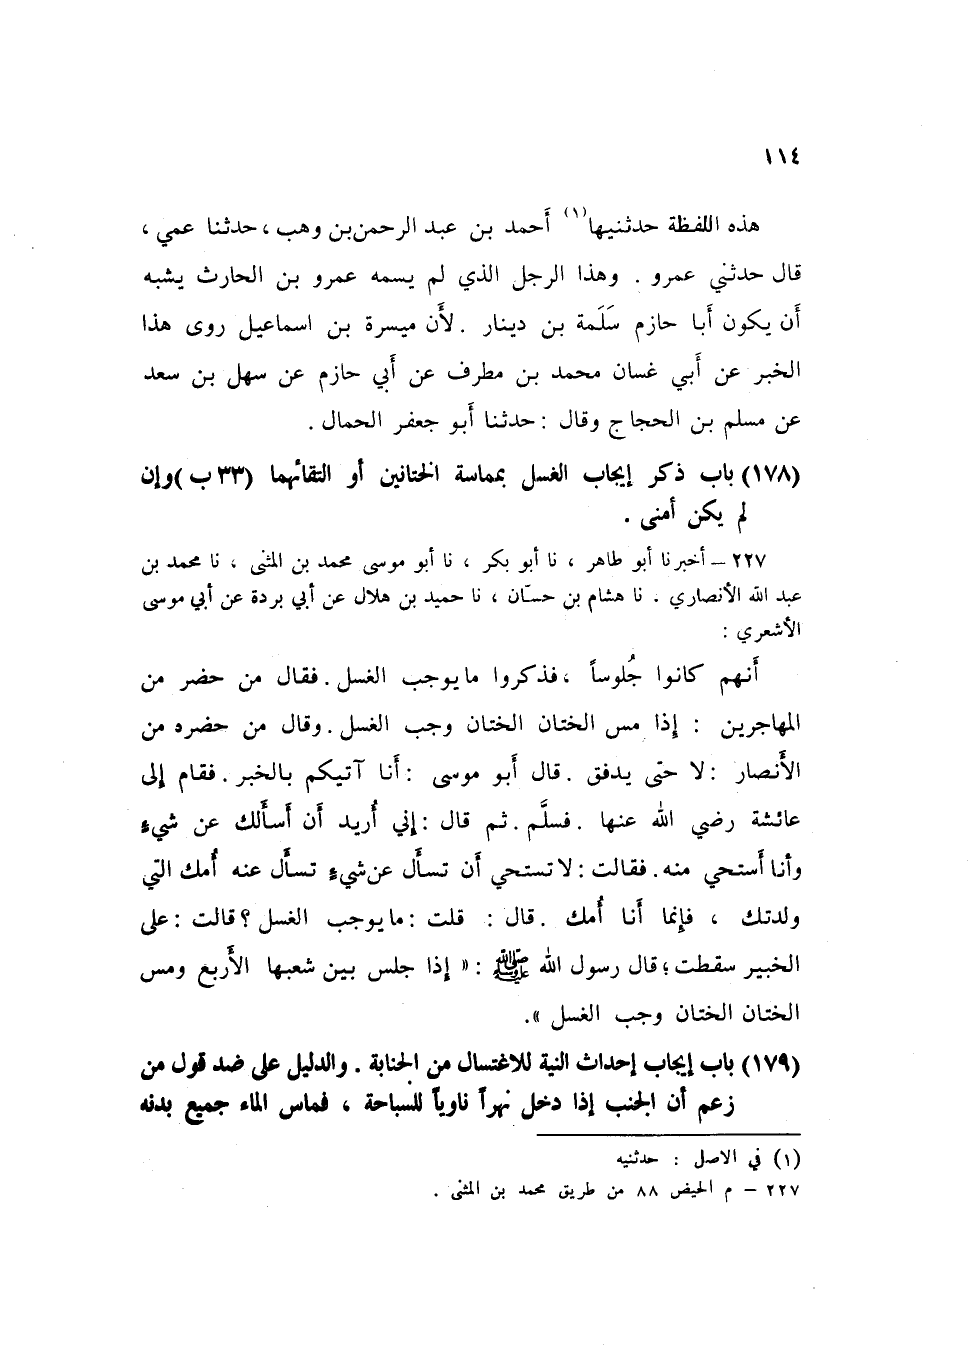 ١١٤
هذه اللفظة حدثنيها(١) أَحمد بن عبد الرحمن بن وهب ، حدثنا عمي ،
قال حدثني عمرو . وهذا الرجل الذي لم يسمه عمرو بن الحارث يشبه
أَن يكون أَبا حازم سَلَمة بن دينار . لأَن ميسرة بن اسماعيل روى هذا
الخبر عن أَبي غسان محمد بن مطرف عن أَبي حازم عن سهل بن سعد
عن مسلم بن الحجاج وقال : حدثنا أَبو جعفر الحمال .
(١٧٨) باب ذكر إيجاب الغسل بمماسة الختانين أو التقائهما (٣٣ ب) وإن
لم يكن أمنى .
٢٢٧ – أخبرنا أبو طاهر ، نا أبو بكر ، نا أبو موسى محمد بن المثنى ، نا محمد بن
عبد الله الأنصاري . نا هشام بن حسّان ، نا حميد بن هلال عن أبي بردة عن أبي موسى
الأشعري :
أَنهم كانوا جُلوساً ، فذكروا ما يوجب الغسل . فقال من حضر من
المهاجرين : إِذا مس الختان الختان وجب الغسل . وقال من حضره من
الأَنصار : لا حتى يدفق . قال أَبو موسى : أَنا آتيكم بالخبر . فقام إِلى
عائشة رضي الله عنها . فسلَّم . ثم قال : إِني أُريد أَن أَسأَلك عن شيءٍ
وأنا أَستحي منه . فقالت : لا تستحي أَن تسأَل عن شيءٍ تسأَل عنه أُمك التي
ولدتك ، فإِنما أَنا أُمك . قال : قلت : ما يوجب الغسل ؟ قالت : على
الخبير سقطت ؛ قال رسول الله ﷺ : « إِذا جلس بين شعبها الأَربع ومس
الختان الختان وجب الغسل ».
(١٧٩) باب إيجاب إحداث النية للاغتسال من الجنابة . والدليل على ضد قول من
زعم أن الجنب إذا دخل نهراً ناوياً للسباحة ، فماس الماء جميع بدنه
(١) في الاصل : حدثنيه
٢٢٧ – م الحيض ٨٨ من طريق محمد بن المثنى .